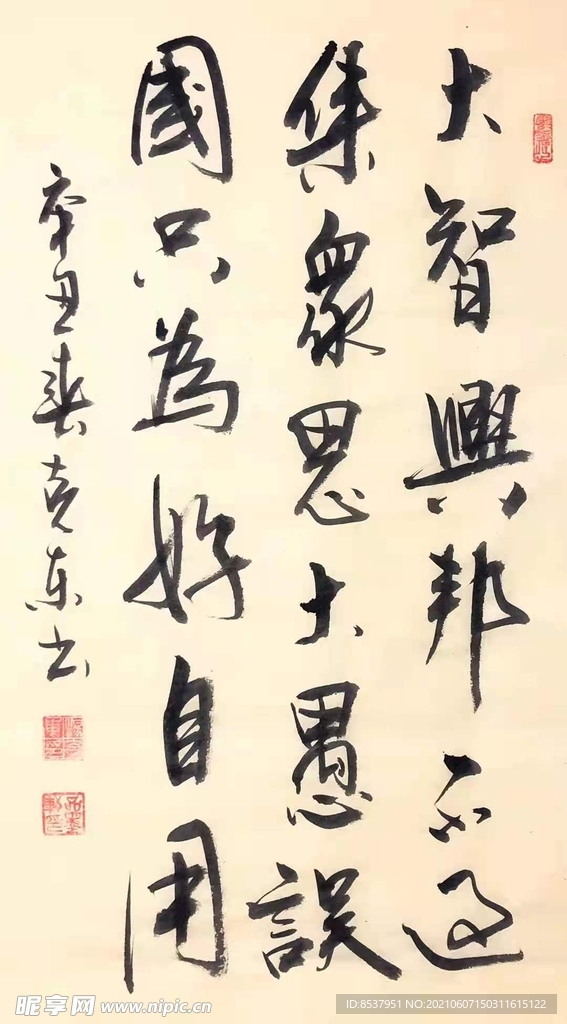 大智興邦不過
集衆思大愚誤
國只為好自用
辛丑春克东书
昵享网 www.nipic.cn
ID:8537951 NO:20210607150311615122